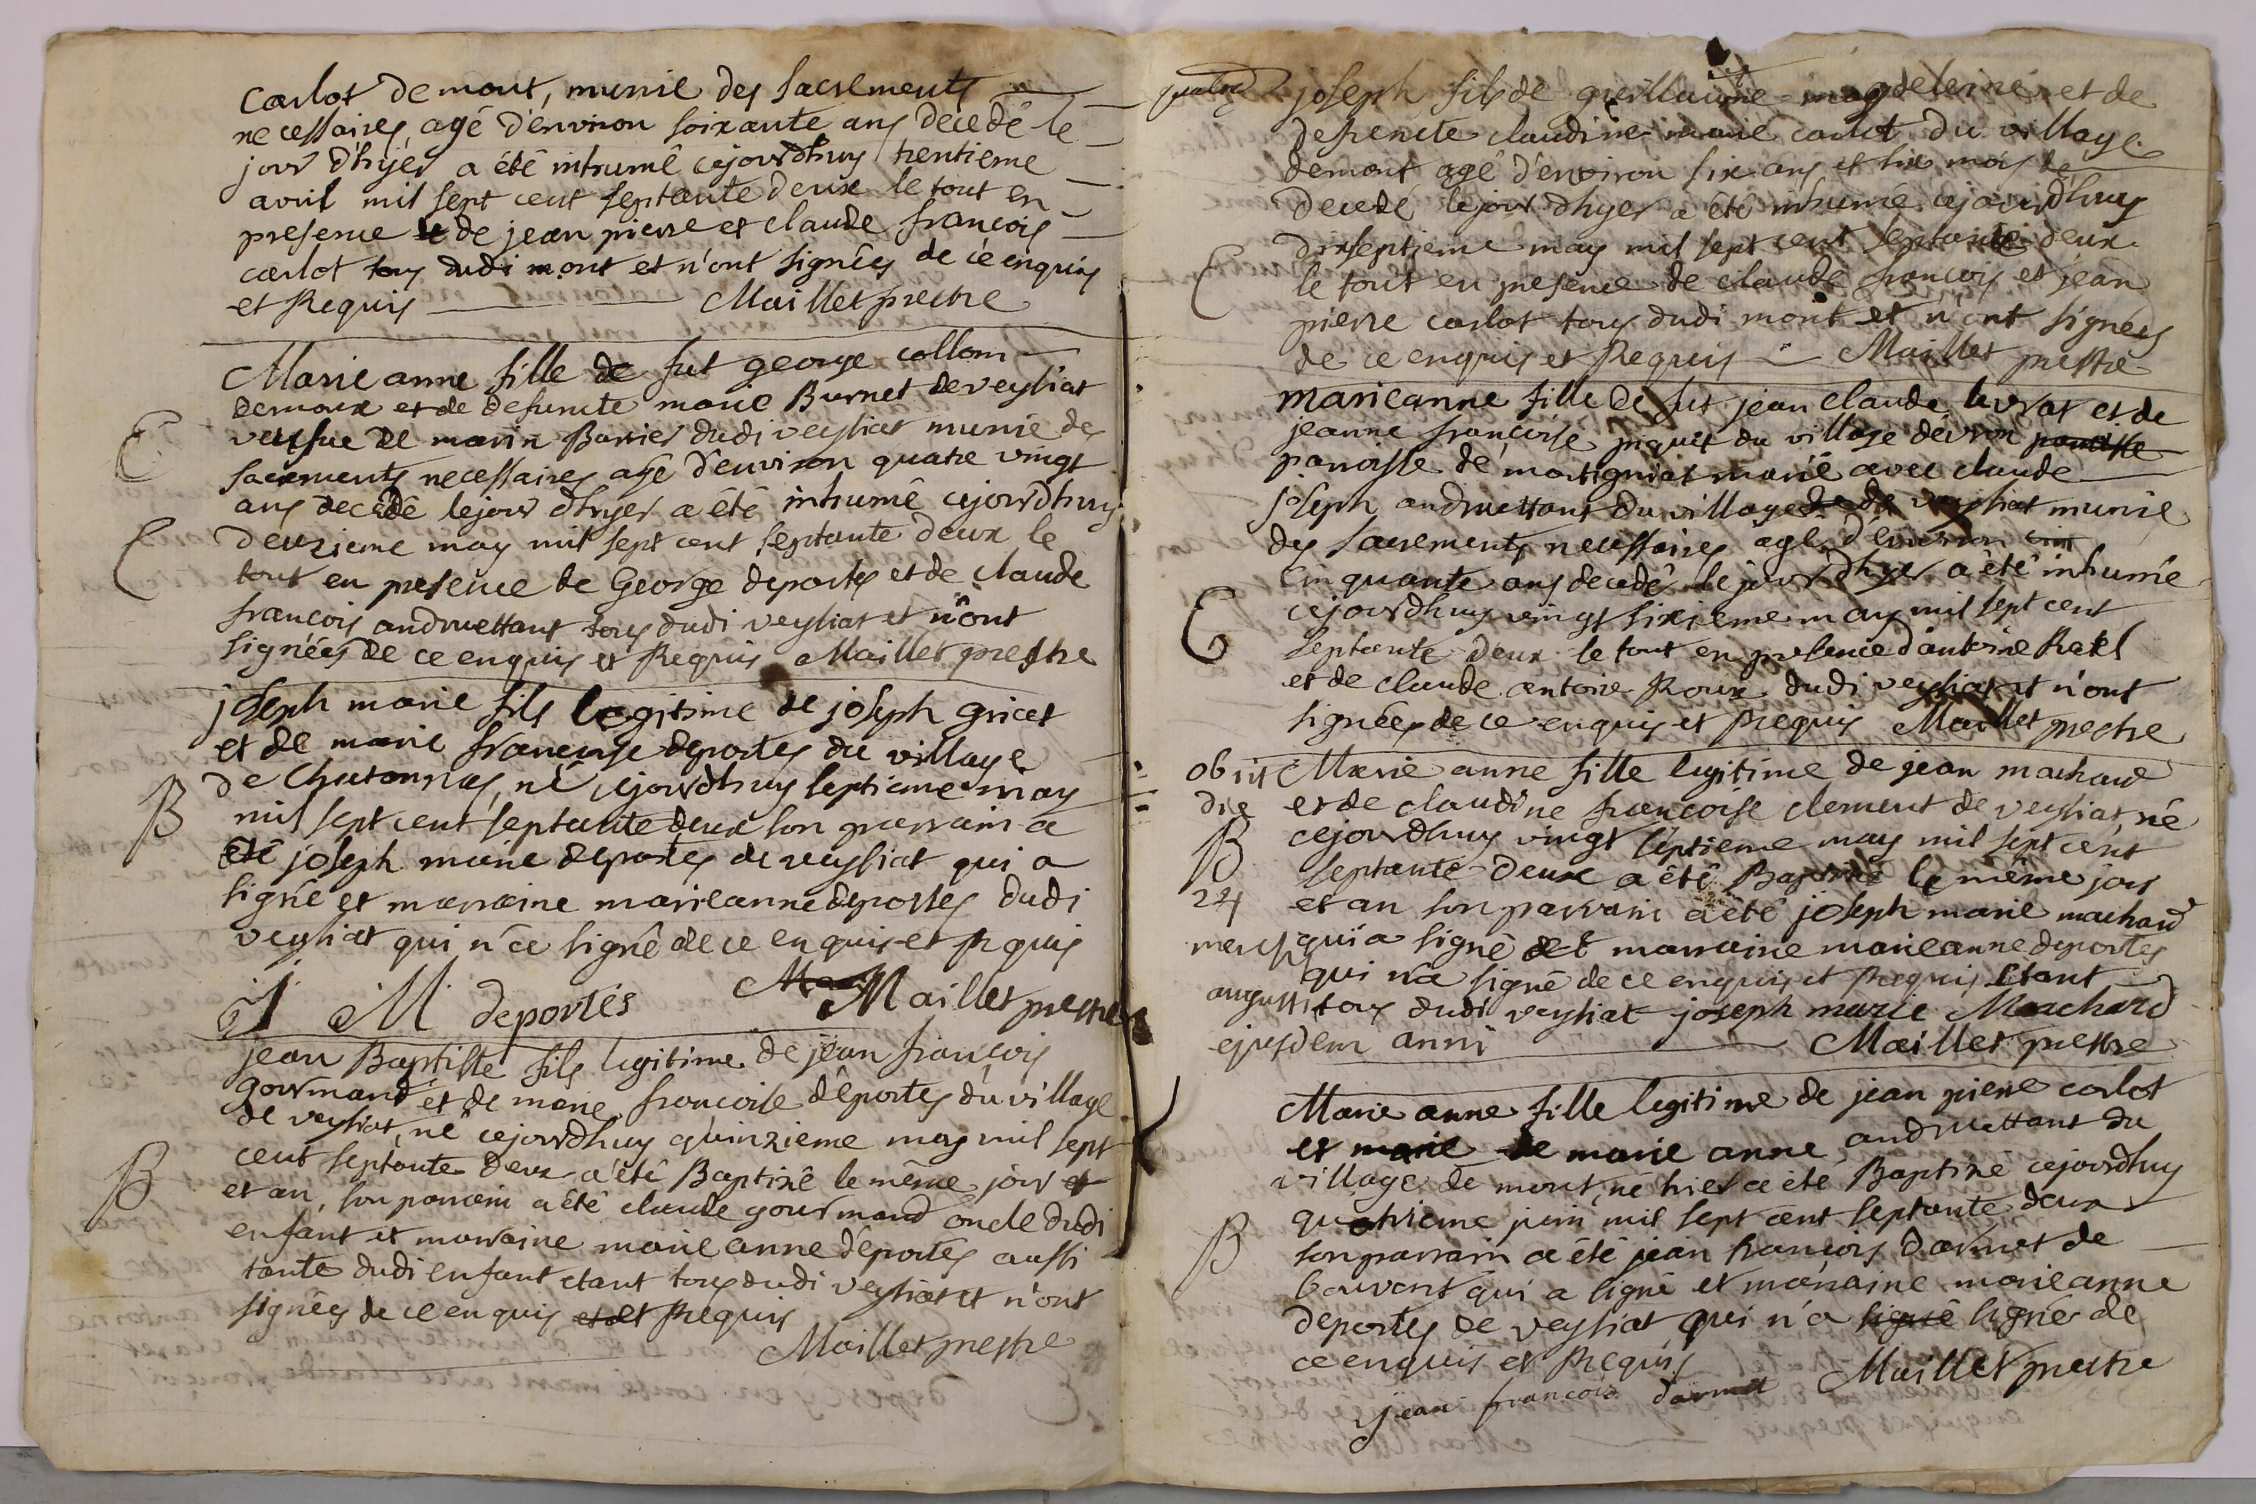 carlot de mont, munie des sacrements
necessaires, agé d'environ soixante ans decedé le
jour d'hyer a été inhumê cejourdhuy trentieme
avril mil sept cent septante deux le tout en
presence de jean pierre et claude françois
carlot tous dudi mont et n'ont signées de ce enquis
et Requis Maillet prestre
Marie anne fille de fut george collom
demoux et de defuncte marie Burnet de veysiat
vefue de marin Barrier dudi veysiat munie des
sacrements necessaires agé d'environ quatre vingt
ans decedê lejour dhyer a été inhumê cejourdhuy
E
E
deuzieme may mil sept cent septante deux le
tout en presence de George deportes et de claude
françois andruettant tous dudi veysiat et n'ont
signées de ce enquis et Requis Maillet prestre
joseph marie fils legitime de joseph gricet
et de marie françoise deportes du village
de Chatonnas, né cejourdhuy septieme may
B
mil sept cent septante deux son parrain a
été joseph marie deportes de veysiat qui a
signé et marraine marieanne deportes dudi
veysiat qui n'a signé de ce enquis et Requis
J M deportes Maillet prestre
jean Baptiste fils legitime de jean françois
gourmand et de marie françoise déportes du village
de veysiat, né cejourdhuy quinzieme may mil sept
cent septante deux a été Baptizê le même jour et
B
et an, son parrain a été claude gourmand oncle dudi
enfant et marraine marieanne déportes aussi
tante dudi enfant etant tous dudi veysiat et n'ont
signées de ce enquis et Requis
Maillet prestre
joseph fils de guillaume magdeleine et de
defuncte claudine marie carlot du village
demont agé d'environ six ans et six mois
decedé lejour dhyer a été inhumé cejourdhuy
dixseptieme may mil sept cent septante deux
E
le tout en presence de claude françois et jean
pierre carlot tous dudi mont et n'ont signées
de ce enquis et Requis Maillet prestre
marieanne fille de fut jean claude levrat et de
jeanne françoise piquet du village devron paroisse
paroisse de martigniat marié avec claude
joseph andruettant du village de veysiat munie
des sacrements necessaires agé d'environ cin
cinquante ans decedé le jour dhyer a été inhumée
E
cejourdhuy vingt sixieme may mil sept cent
septante deux le tout en presence d'antoine Ratel
et de claude antoine Roux dudi veysiat et n'ont
signées de ce enquis et Requis Maillet prestre
obiit
die
24
mensis
augusti
ejusdem anni
Marie anne fille legitime de jean machard
et de claudine françoise clement de veysiat né
B
cejourdhuy vingt septieme may mil sept cent
septante deux a été Baptizé le même jour
et an son parrain a été joseph marie machard
qui a signé et marraine marieanne deportes
qui n'a signé de ce enquis et Requis etant
tous dudi veysiat joseph marie Machard
Maillet prestre
Marie anne fille legitime de jean pierre carlot
et marie de marie anne andruettant du
village de mont, né hier a été Baptizé cejourdhuy
quatrieme juin mil sept cent septante deux
B
son parrain a été jean françois Darmet de
bouvent qui a signé et marraine marieanne
deportes de veysiat qui n'a signé signés de
ce enquis et Requis Maillet prestre
jean francois darmet